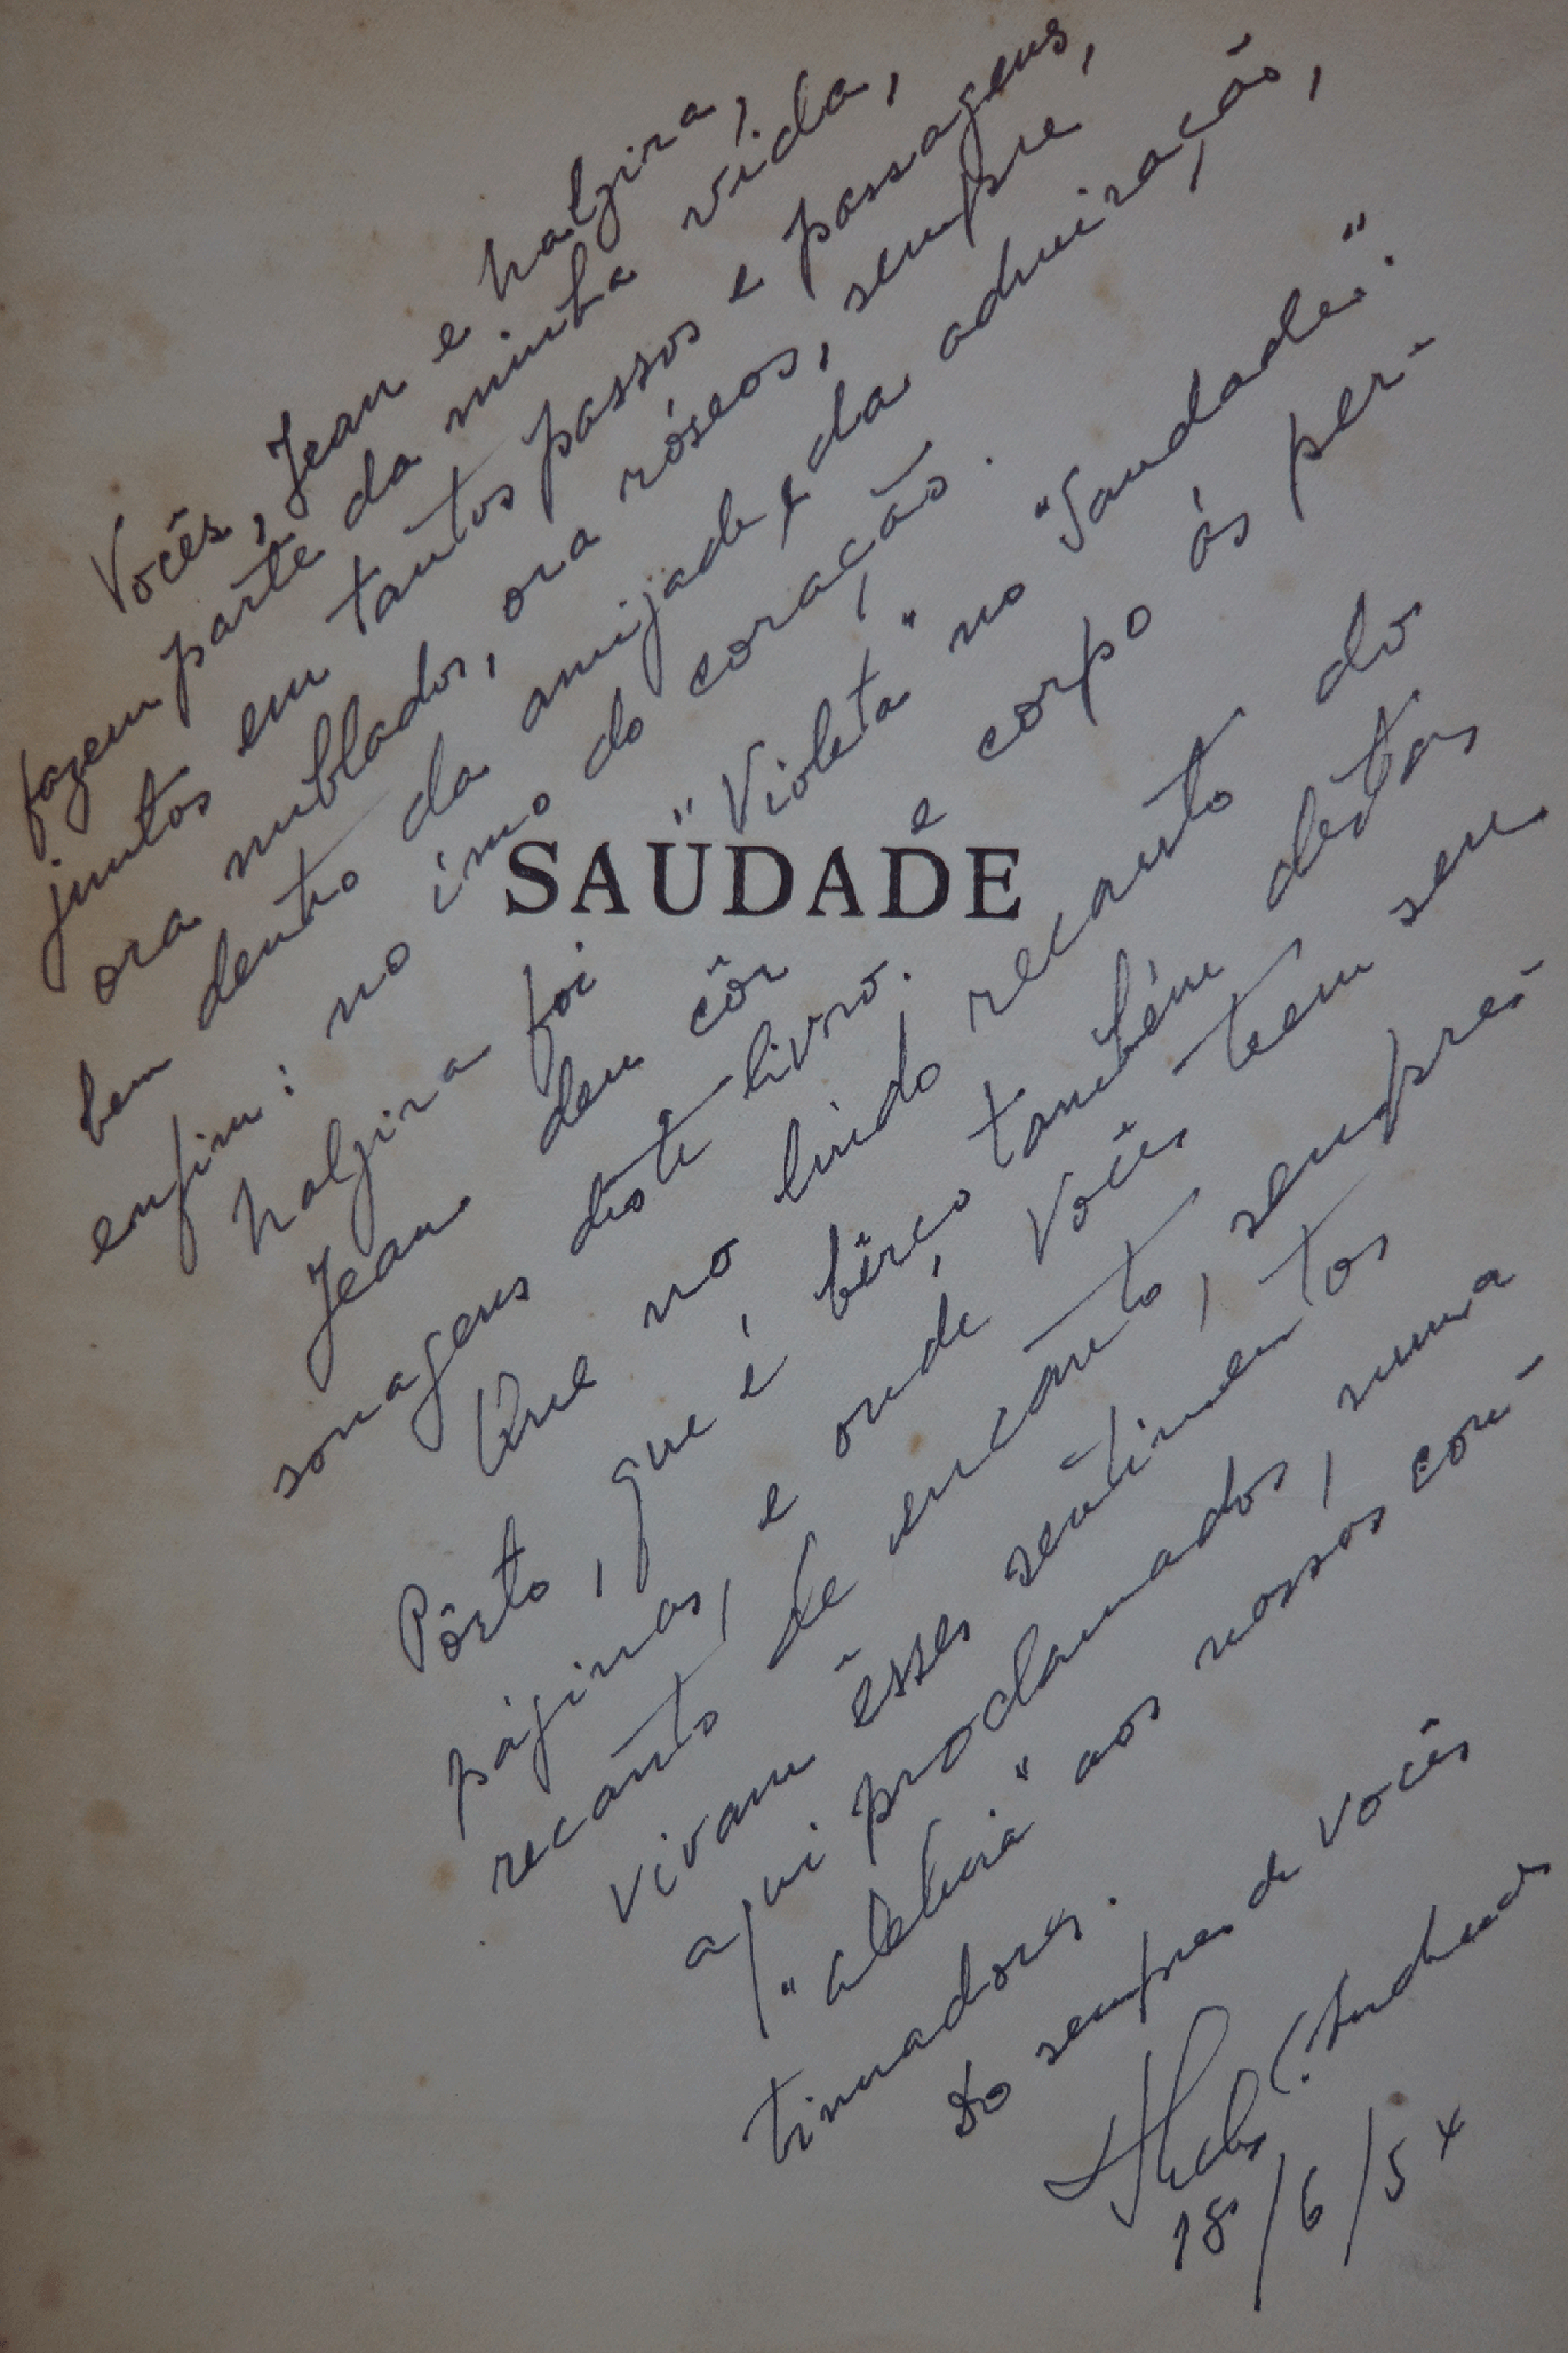 Vocês, Jean e Nalzira,
fazem parte da minha vida,
juntos em tantos passos e passagens,
ora nublados, ora róseos, sempre
bem dentro da amizade e da admiração,
enfim: no imo do coração.
Nalzira foi "Violeta" no "Saudade".
Jean deu côr e corpo ás per-
sonagens deste livro.
SAUDADE
Que no lindo recanto do
Pôrto, que é bêrço também destas
páginas, e onde Vocês teem seu
recanto de encanto, sempre
vivam êsses sentimentos
aqui proclamados, numa
"aleluia" aos nossos con-
tinuadores.
Do sempre de Vocês
18/6/54